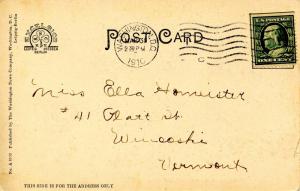 POST CARD
WASHINGTON, D.C.
1910
U.S. POSTAGE
ONE CENT
Miss Ella Homeister
#41 Platt St.
Winooski
Vermont
No. A 10 Published by The Washington News Company, Washington, D.C.
Leipzig-Berlin
THIS SIDE IS FOR THE ADDRESS ONLY